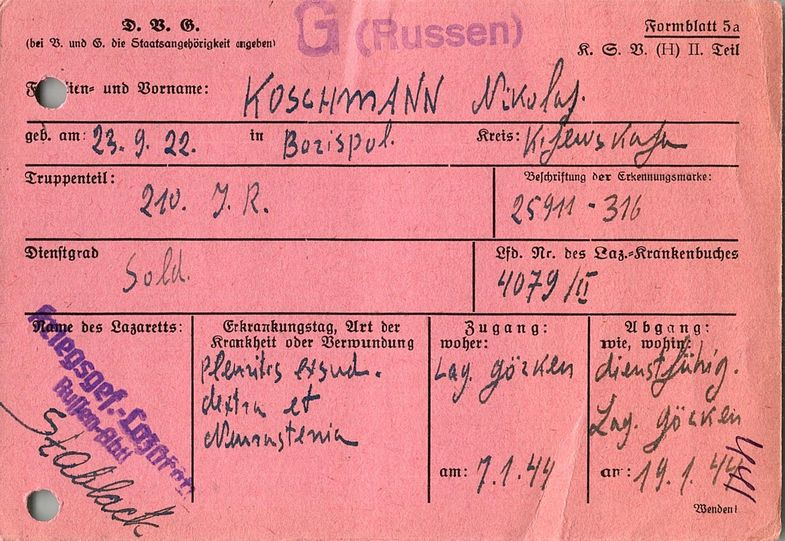 D. V. G.
(bei V. und G. die Staatsangehörigkeit angeben)
G (Russen)
Formblatt 5a
K. S. V. (H) II. Teil
Familien- und Vorname: KOSCHMANN Nikolaj.
geb. am: 23. 9. 22. in Borispol. Kreis: Kijewskaja
Truppenteil: 210. J. R.
Beschriftung der Erkennungsmarke: 25911 - 316
Dienstgrad Sold.
Lfd. Nr. des Laz.-Krankenbuches
4079/II
Name des Lazaretts:
Kriegsgef.-Lazarett
Russen-Abtl
Stablack
Erkrankungstag, Art der
Krankheit oder Verwundung
Pleuritis exsud.
dextra et
Neurastenia
Zugang:
woher:
Lag. Görken
am: 7. 1. 44
Abgang:
wie, wohin:
dienstfähig.
Lag. Görken
an: 19. 1. 44
Wenden!